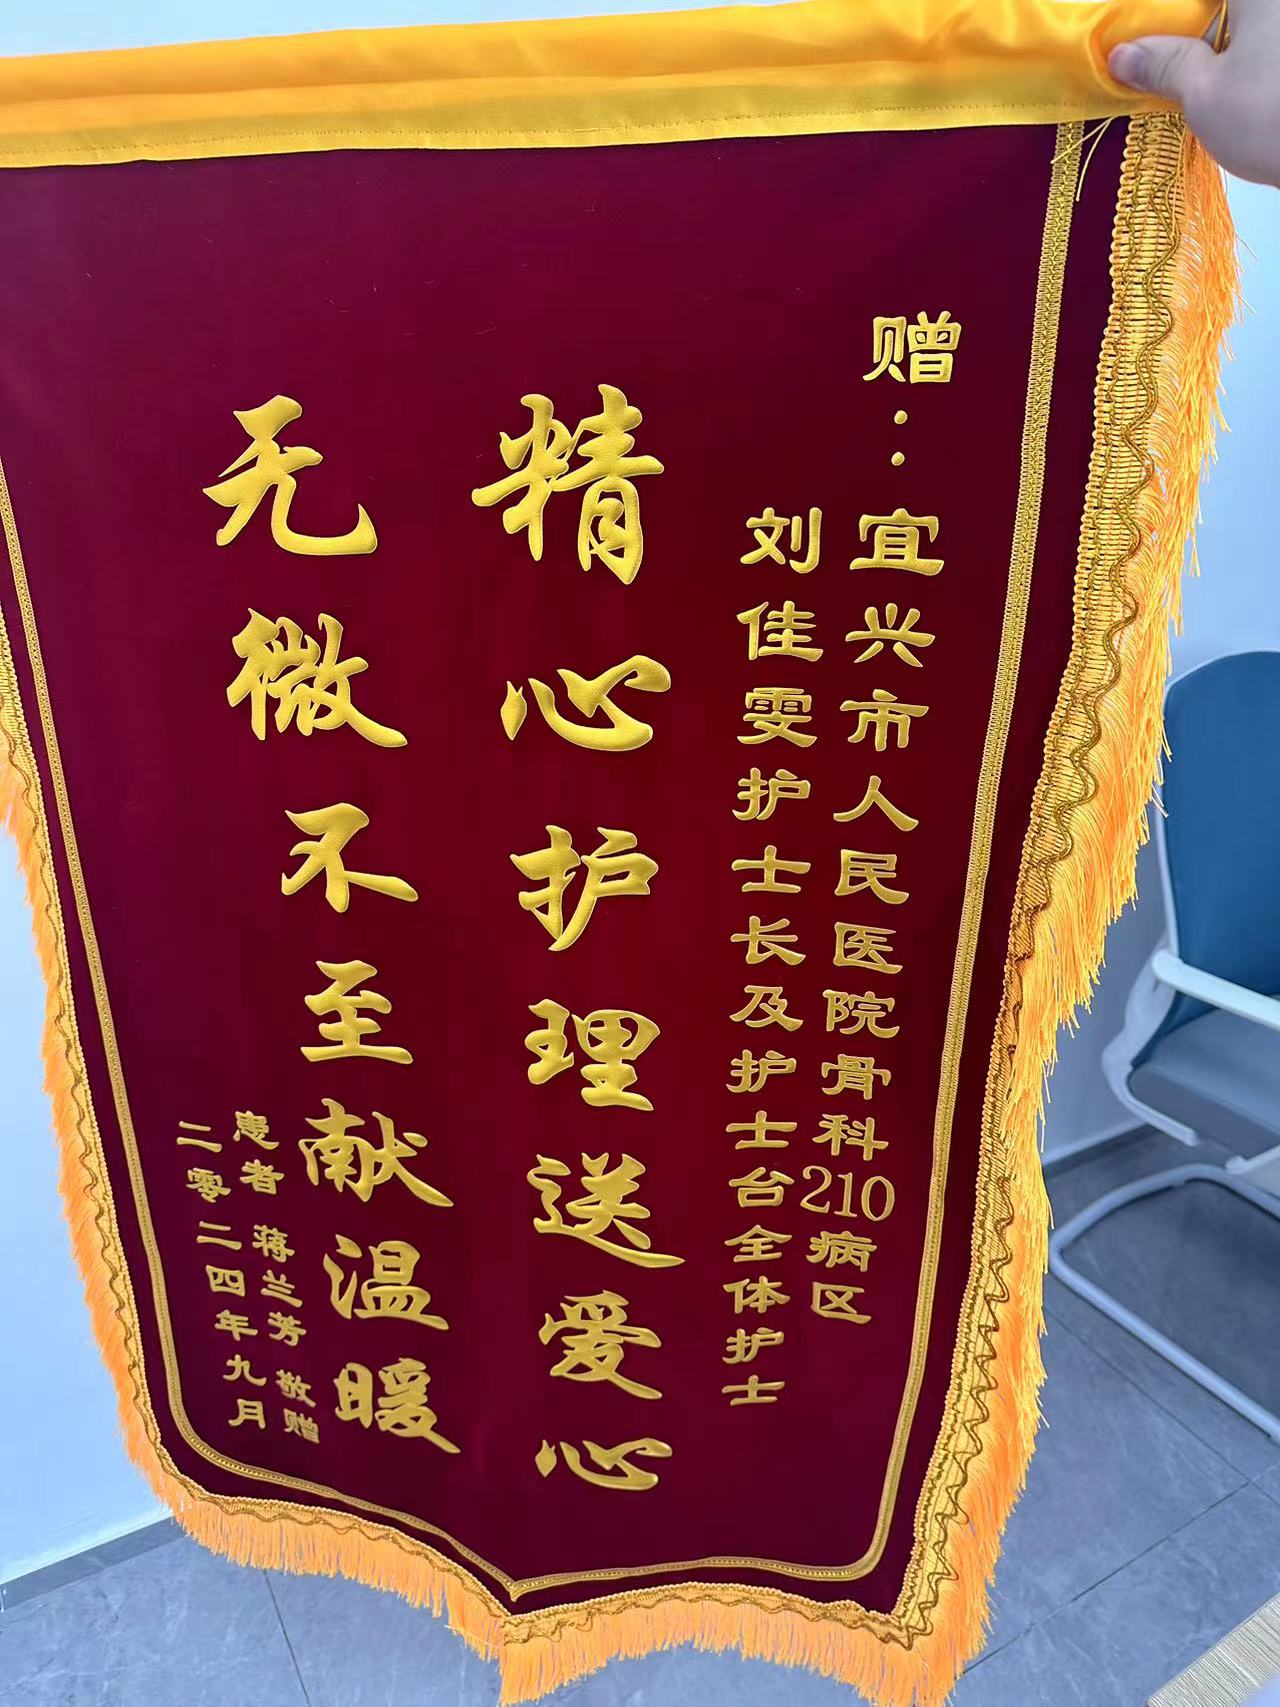 赠：宜兴市人民医院骨科210病区
刘佳雯护士长及护士台全体护士
精心护理送爱心
无微不至献温暖
患者 蒋兰芳 敬赠
二零二四年九月